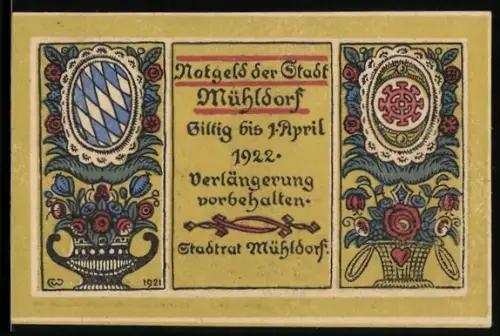 Notgeld der Stadt
Mühldorf
Giltig bis 1. April
1922.
Verlängerung
vorbehalten.
Stadtrat Mühldorf.
1921